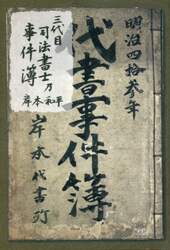 明治四拾参年
代書事件簿
三代目
司法書士乃
事件簿
岸本和平
岸本代書